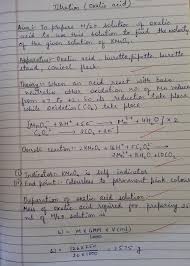 Titration (Oxalic acid)
Aim:- To prepare M/20 solution of oxalic
acid to use this solution to find the molarity
of the given solution of KMnO4.
Apparatus:- Oxalic acid, burette, pipette, burette
stand, conical flask.
Theory:- When an acid react with base
neutralise other oxidation no. of Mn reduces
from +7 to +2 so its reduction take place
while oxidation take place
[MnO4- + 8H+ + 5e- → Mn2+ + 4H2O] × 2
→ 2CO2 + 2e-
Overall reaction: 2MnO4
→ 2Mn2+ + 10CO2
Indicator:- KMnO4 is self indicator
End point:- Colourless to permanent pink colour
Preparation of oxalic acid solution:-
Mass of oxalic acid required for preparing
ml of M/20 solution is
W = M × GMM × V (ml)
1000
W = 126 × 250 = 1.575 g
20 × 1000